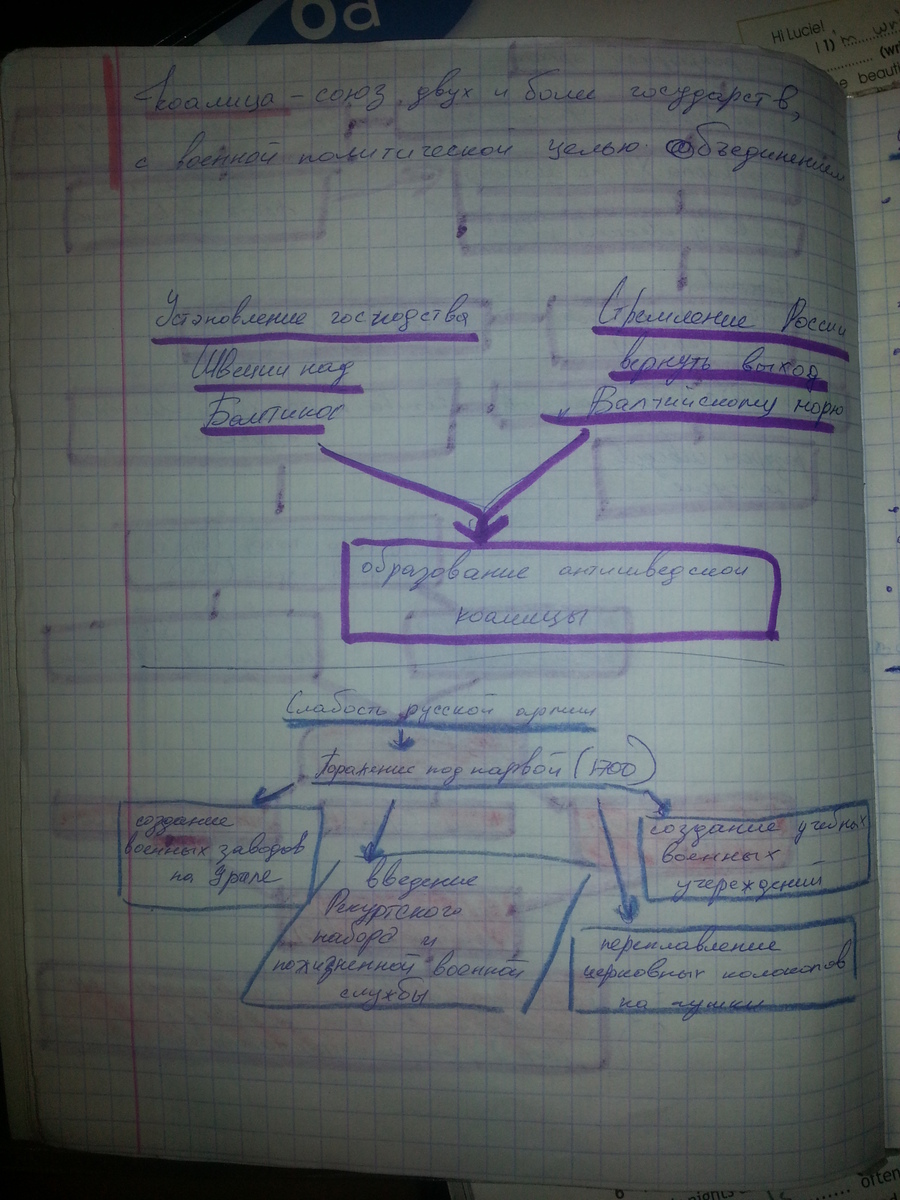 6a
Hi Lucie!
(1) I'm wr
(wr
e beauti
Коалица – союз двух и боли государств,
с военной политической целью Объединением
Установление господства
Швеции над
Балтикос
Стремление России
вернуть выход
к Балтийскому морю
образование антишведской
коалицы
Слабость русской армии
Поражение под нарвой (1700)
создание
военных заводов
на Урале
введение
Рекуртского
набора и
пожизненной военной
службы
создание учебных
военных
учереждений
переплавление
церковных колоколов
на пушки
often